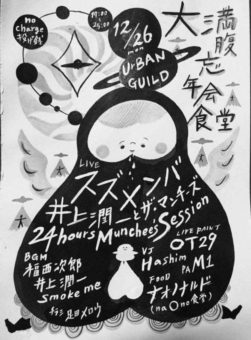 no charge
投げ銭
19:00
~25:00
12/26
mon
UrBAN
GUILD
大満腹
忘年会
食堂
LIVE
スズメンバ
井上潤一とザ・マンチーズ
24hours Munchees Session
BGM
福西次郎
井上潤一
smoke me
LIVE PAINT
OT29
VJ
Hashim
PA M1
FOOD
ナオノオルド
(naOno食堂)
メロウ